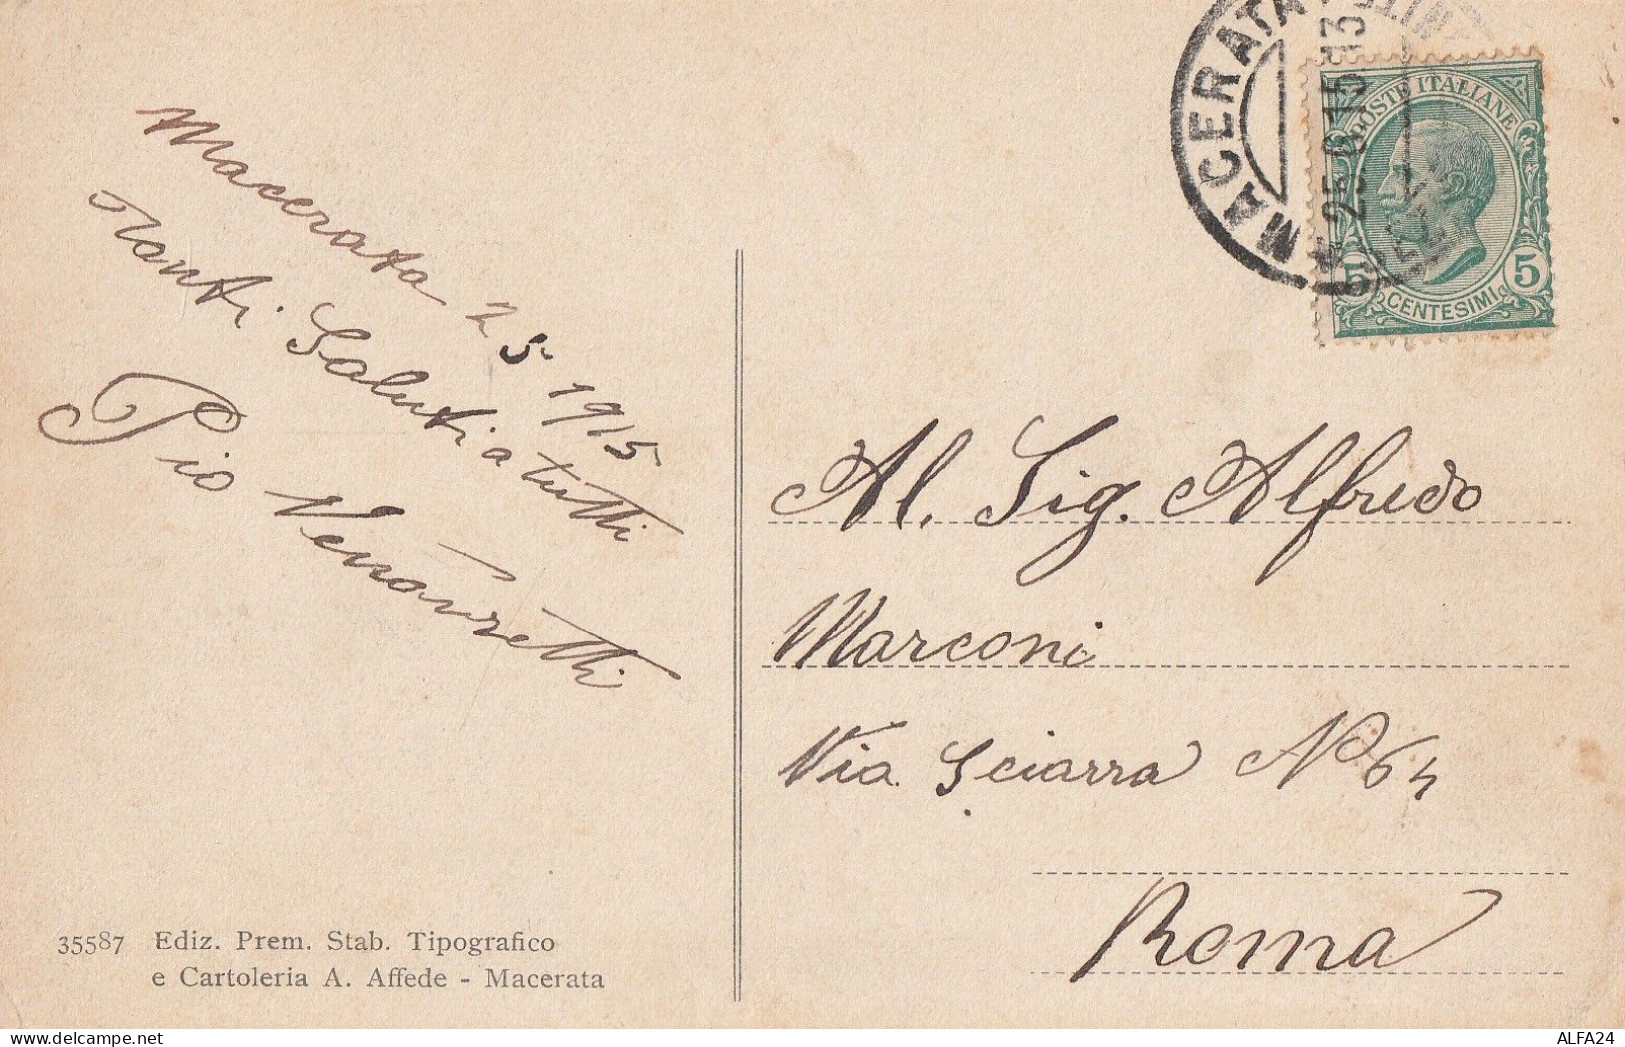 Macerata 25 1915
Tanti Saluti a tutti
Pio
MACERATA
25.6.15.13
POSTE ITALIANE
5 CENTESIMI 5
Al. Sig. Alfredo
Marconi
Via Sciarra N° 64
Roma
35587 Ediz. Prem. Stab. Tipografico
e Cartoleria A. Affede - Macerata
ALFA24